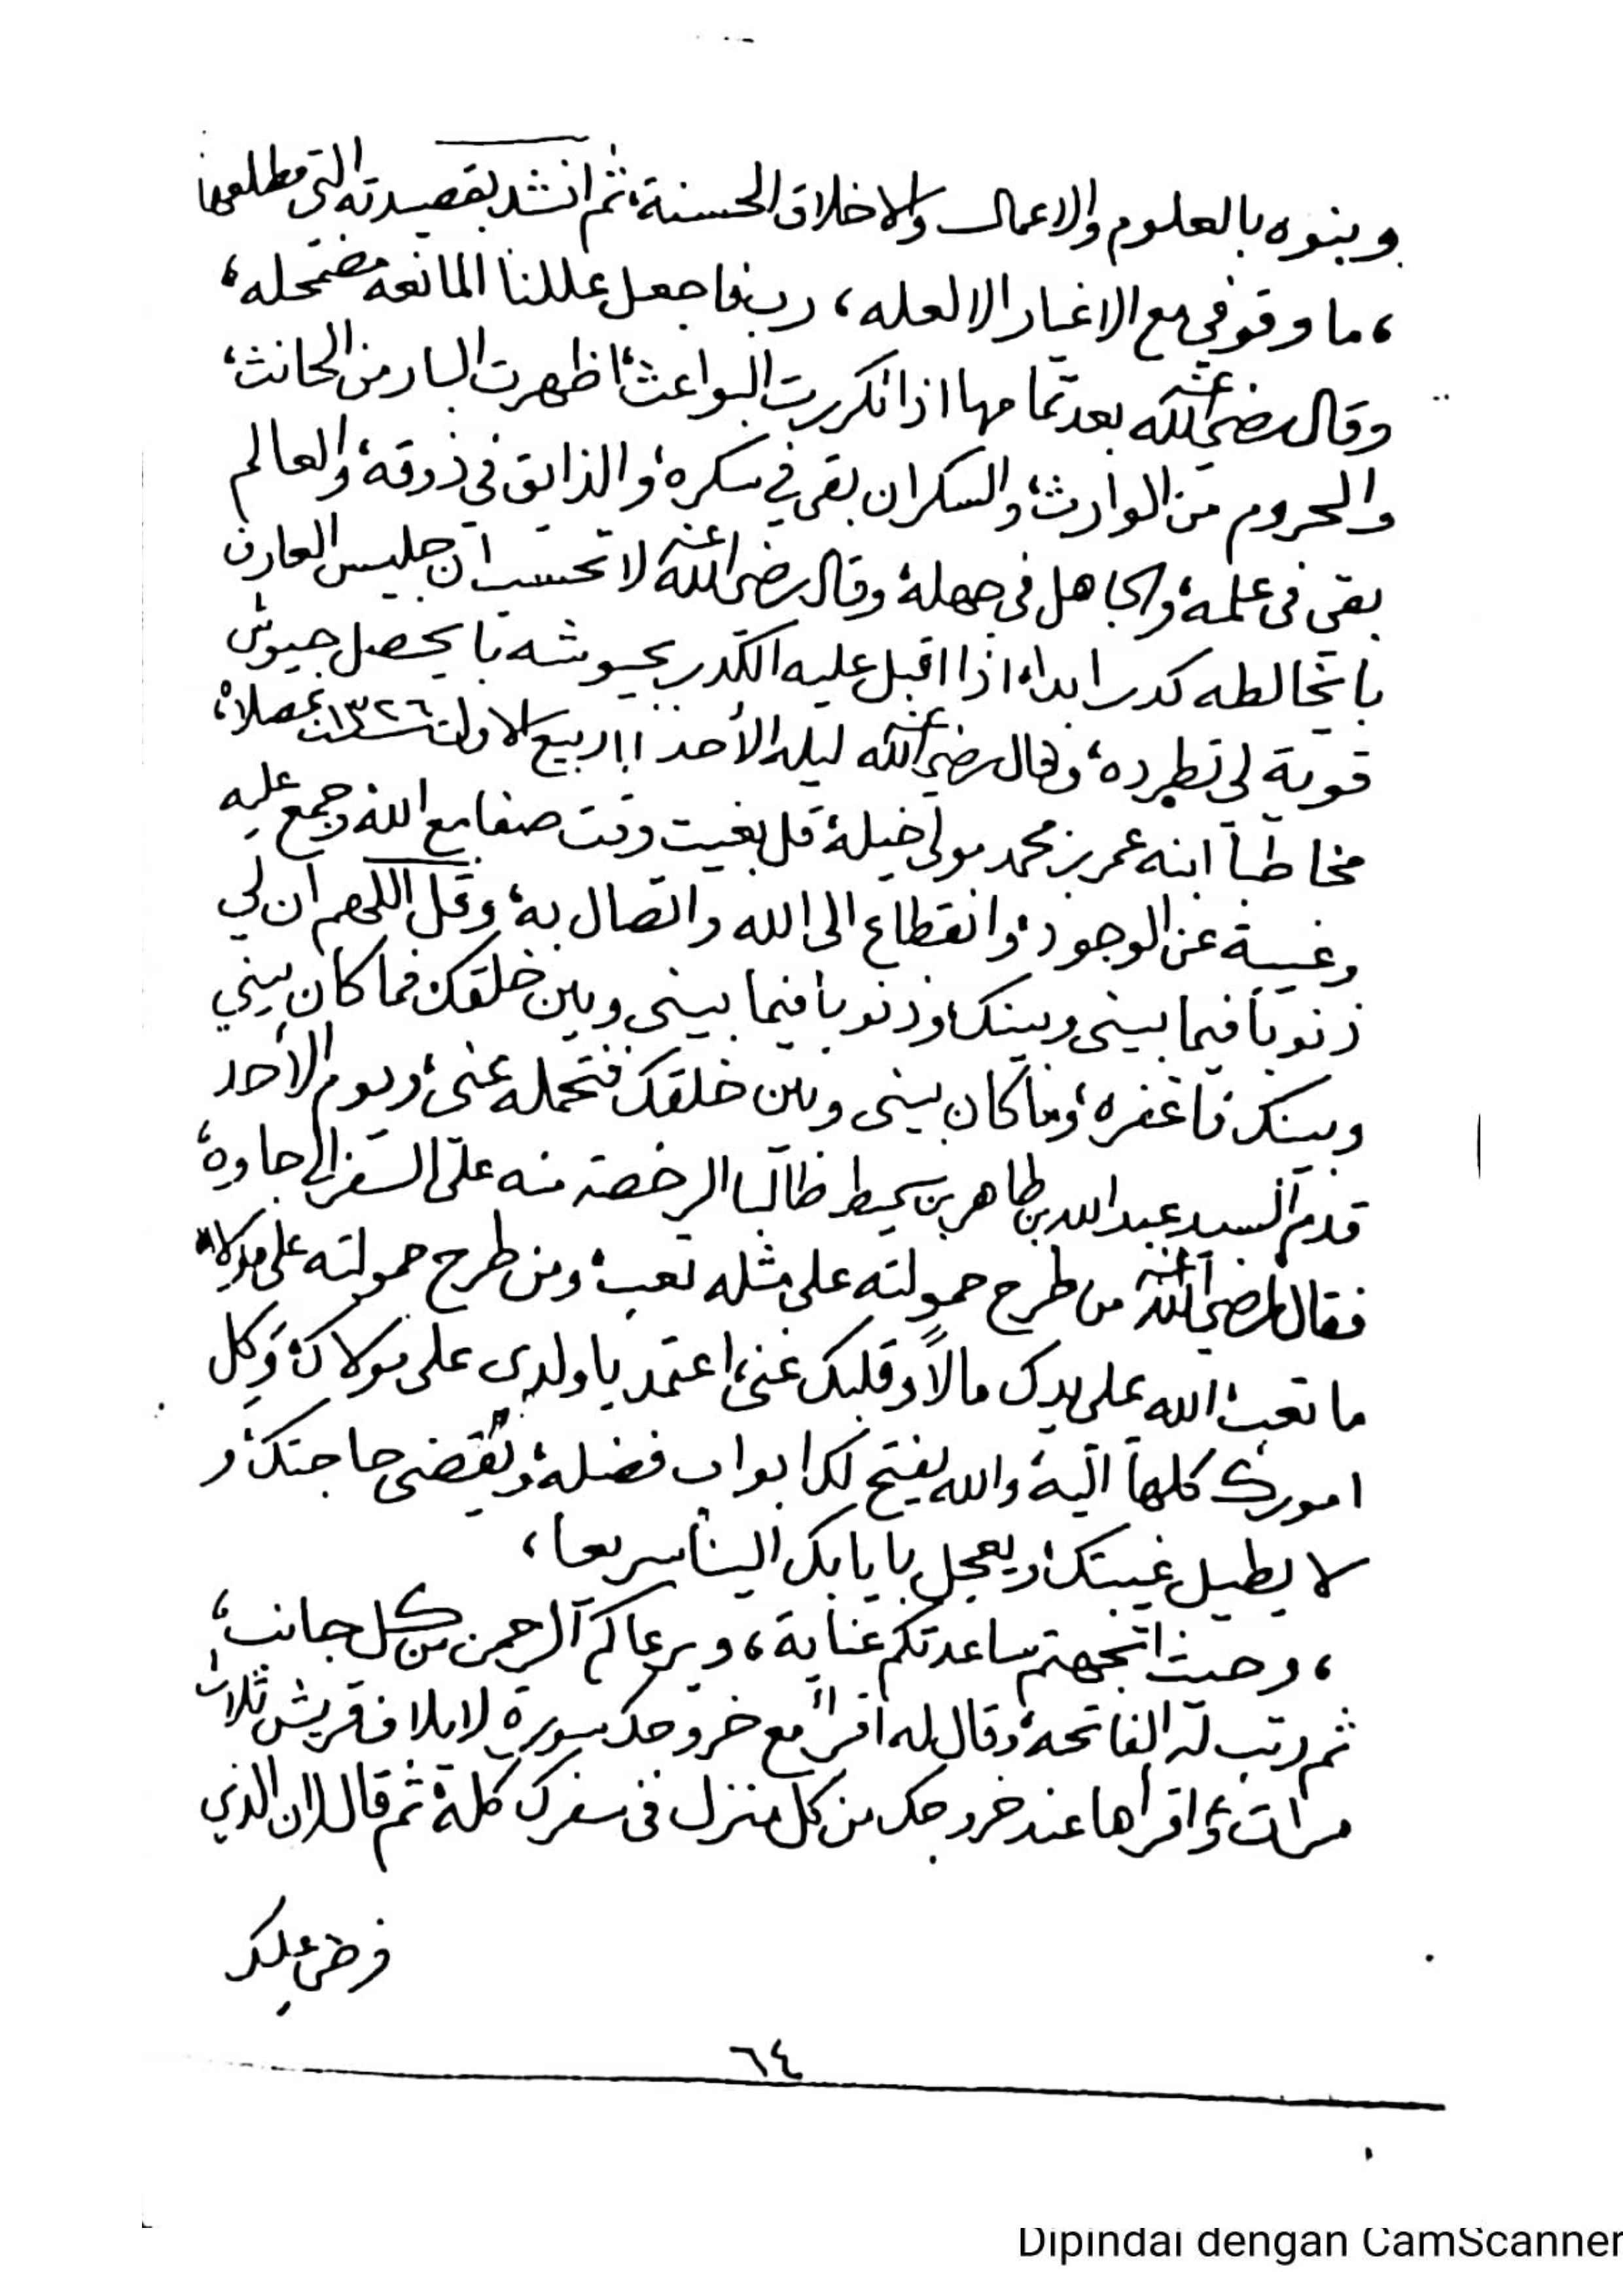 وبنوه بالعلوم والاعمال والاخلاق الحسنة، ثم انشد بقصيدته التي مطلعها
، ما وقوفي مع الاغيار الا لعله ، ربنا جعل عللنا المانعه مضمحله ،
وقال رضي الله عنه بعد تمامها اذا تكررت البواعث، اظهرت البار من الحانث،
والمحروم من الوارث، والسكران بقي في سكره، والذايق في ذوقه، والعالم
بقي في علمه، والجاهل في جهله، وقال رضي الله عنه لا تحسب ان جليس العارف
باتخالطه كدر ابدا، اذا اقبل عليه الكدر بجيوشه با يحصل جيوش
قوية لي تطرده، وقال رضي الله عنه ليلة الأحد ١١ ربيع الاول سنة ١٣٢٦ بمصلاه،
مخاطباً ابنه عمر بن محمد مولى خيله، قل بغيت وقت صفا مع الله، وجمع عليه
وغيبة عن الوجود، وانقطاع الى الله واتصال به، وقل اللهم ان لي
ذنوباً فيما بيني وبينك، وذنوباً فيما بيني وبين خلقك، فما كان بيني
وبينك فاغفره، وما كان بيني وبين خلقك فتحمله عني، ويوم الأحد
قدم السيد عبدالله بن طاهر بن سميط طالبا الرخصة منه على السفر الى جاوه،
فقال رضي الله عنه من طرح حمولته على مثله تعب، ومن طرح حمولته على مولاه
ما تعب، الله على يدك مالاً وقلبك غنى، اعتمد يا ولدي على مولاك، وَكِل
امورك كلها اليه، والله يفتح لك ابواب فضله، ويقضي حاجتك، و
لا يطيل غيبتك، ويعجل بايابك الينا سريعا ،
، وحيث اتجهتم ساعدتكم عناية ، ويرعاكم الرحمن من كل جانب ،
ثم رتب له الفاتحة، وقال له اقرأ مع خروجك سورة لايلاف قريش ثلاث
مرات، واقرأها عند خروجك من كل منزل في سفرك كله، ثم قال ان الذي
فرض عليك
٦٤
Dipindai dengan CamScanner